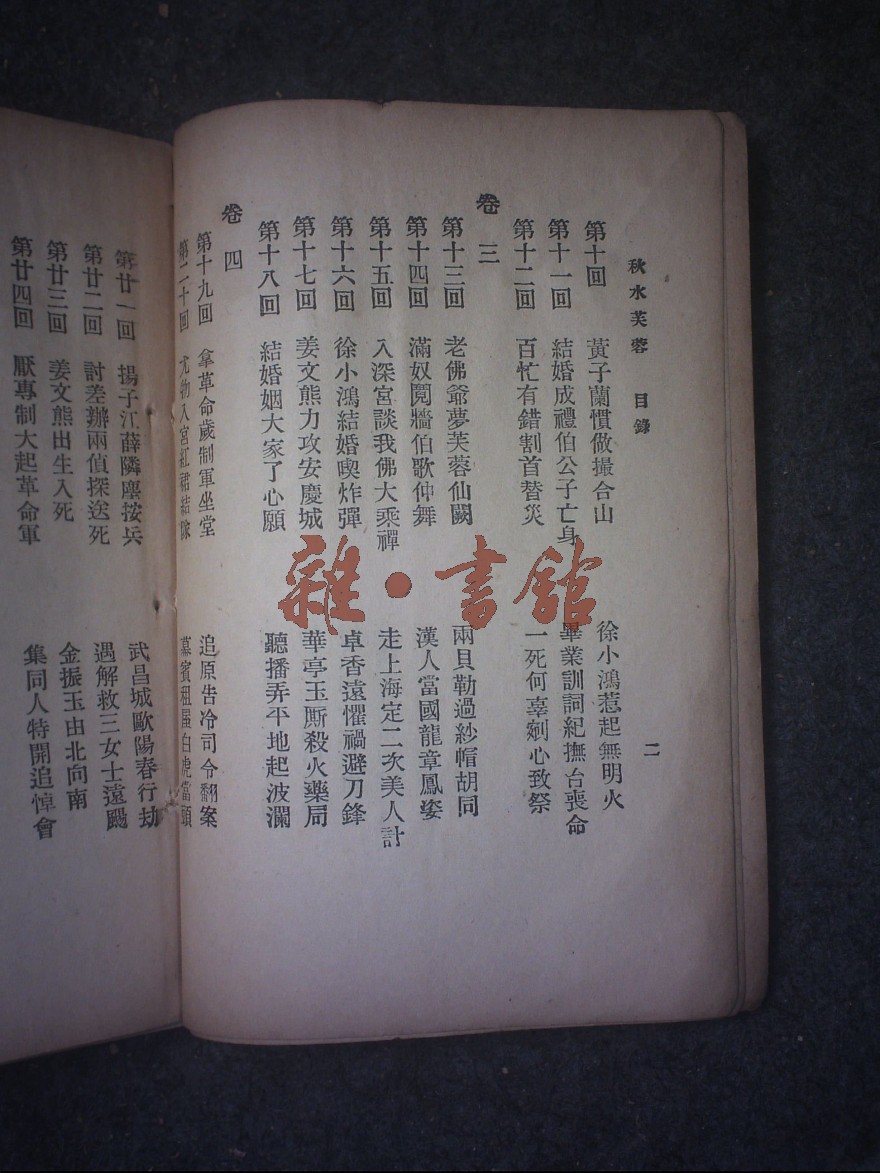 秋水芙蓉 目錄 二
第十回 黃子蘭慣做撮合山 徐小鴻惹起無明火
第十一回 結婚成禮伯公子亡身 畢業訓詞紀撫台喪命
第十二回 百忙有錯割首替災 一死何辜剜心致祭
卷三
第十三回 老佛爺夢芙蓉仙闕 兩貝勒過紗帽胡同
第十四回 滿奴鬩牆伯歌仲舞 漢人當國龍章鳳姿
第十五回 入深宮談我佛大乘禪 走上海定二次美人計
第十六回 徐小鴻結婚喫炸彈 卓香遠懼禍避刀鋒
第十七回 姜文熊力攻安慶城 華亭玉厮殺火藥局
第十八回 結婚姻大家了心願 聽播弄平地起波瀾
卷四
第十九回 拿革命歲制軍坐堂 追原告冷司令翻案
第二十回 尤物入宮紅裙結隊 幕賓租屋白虎當頭
第廿一回 揚子江薛隣塵按兵 武昌城歐陽春行劫
第廿二回 討差辦兩偵探送死 遇解救三女士遠颺
第廿三回 姜文熊出生入死 金振玉由北向南
第廿四回 厭專制大起革命軍 集同人特開追悼會
雜·書館